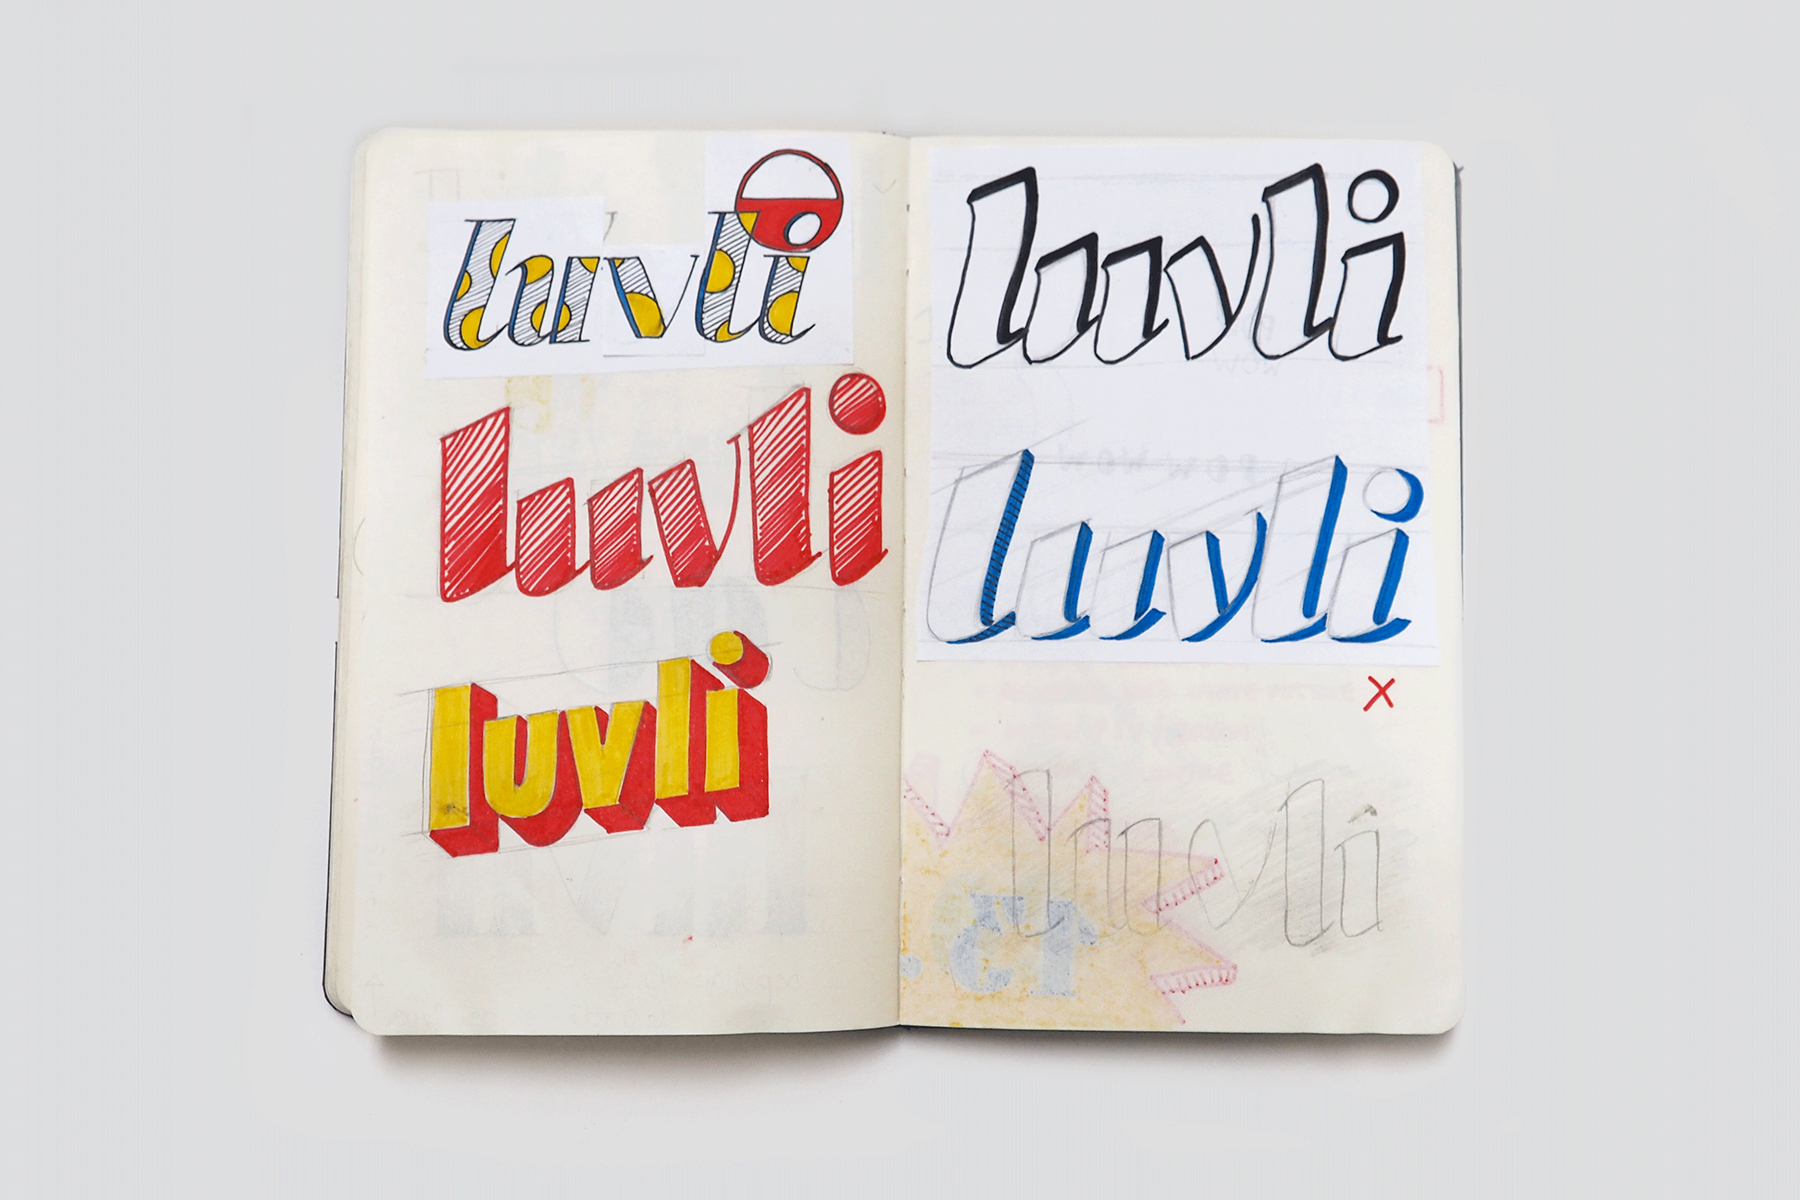 luvli
luvli
luvli
luvli
luvli
luvli